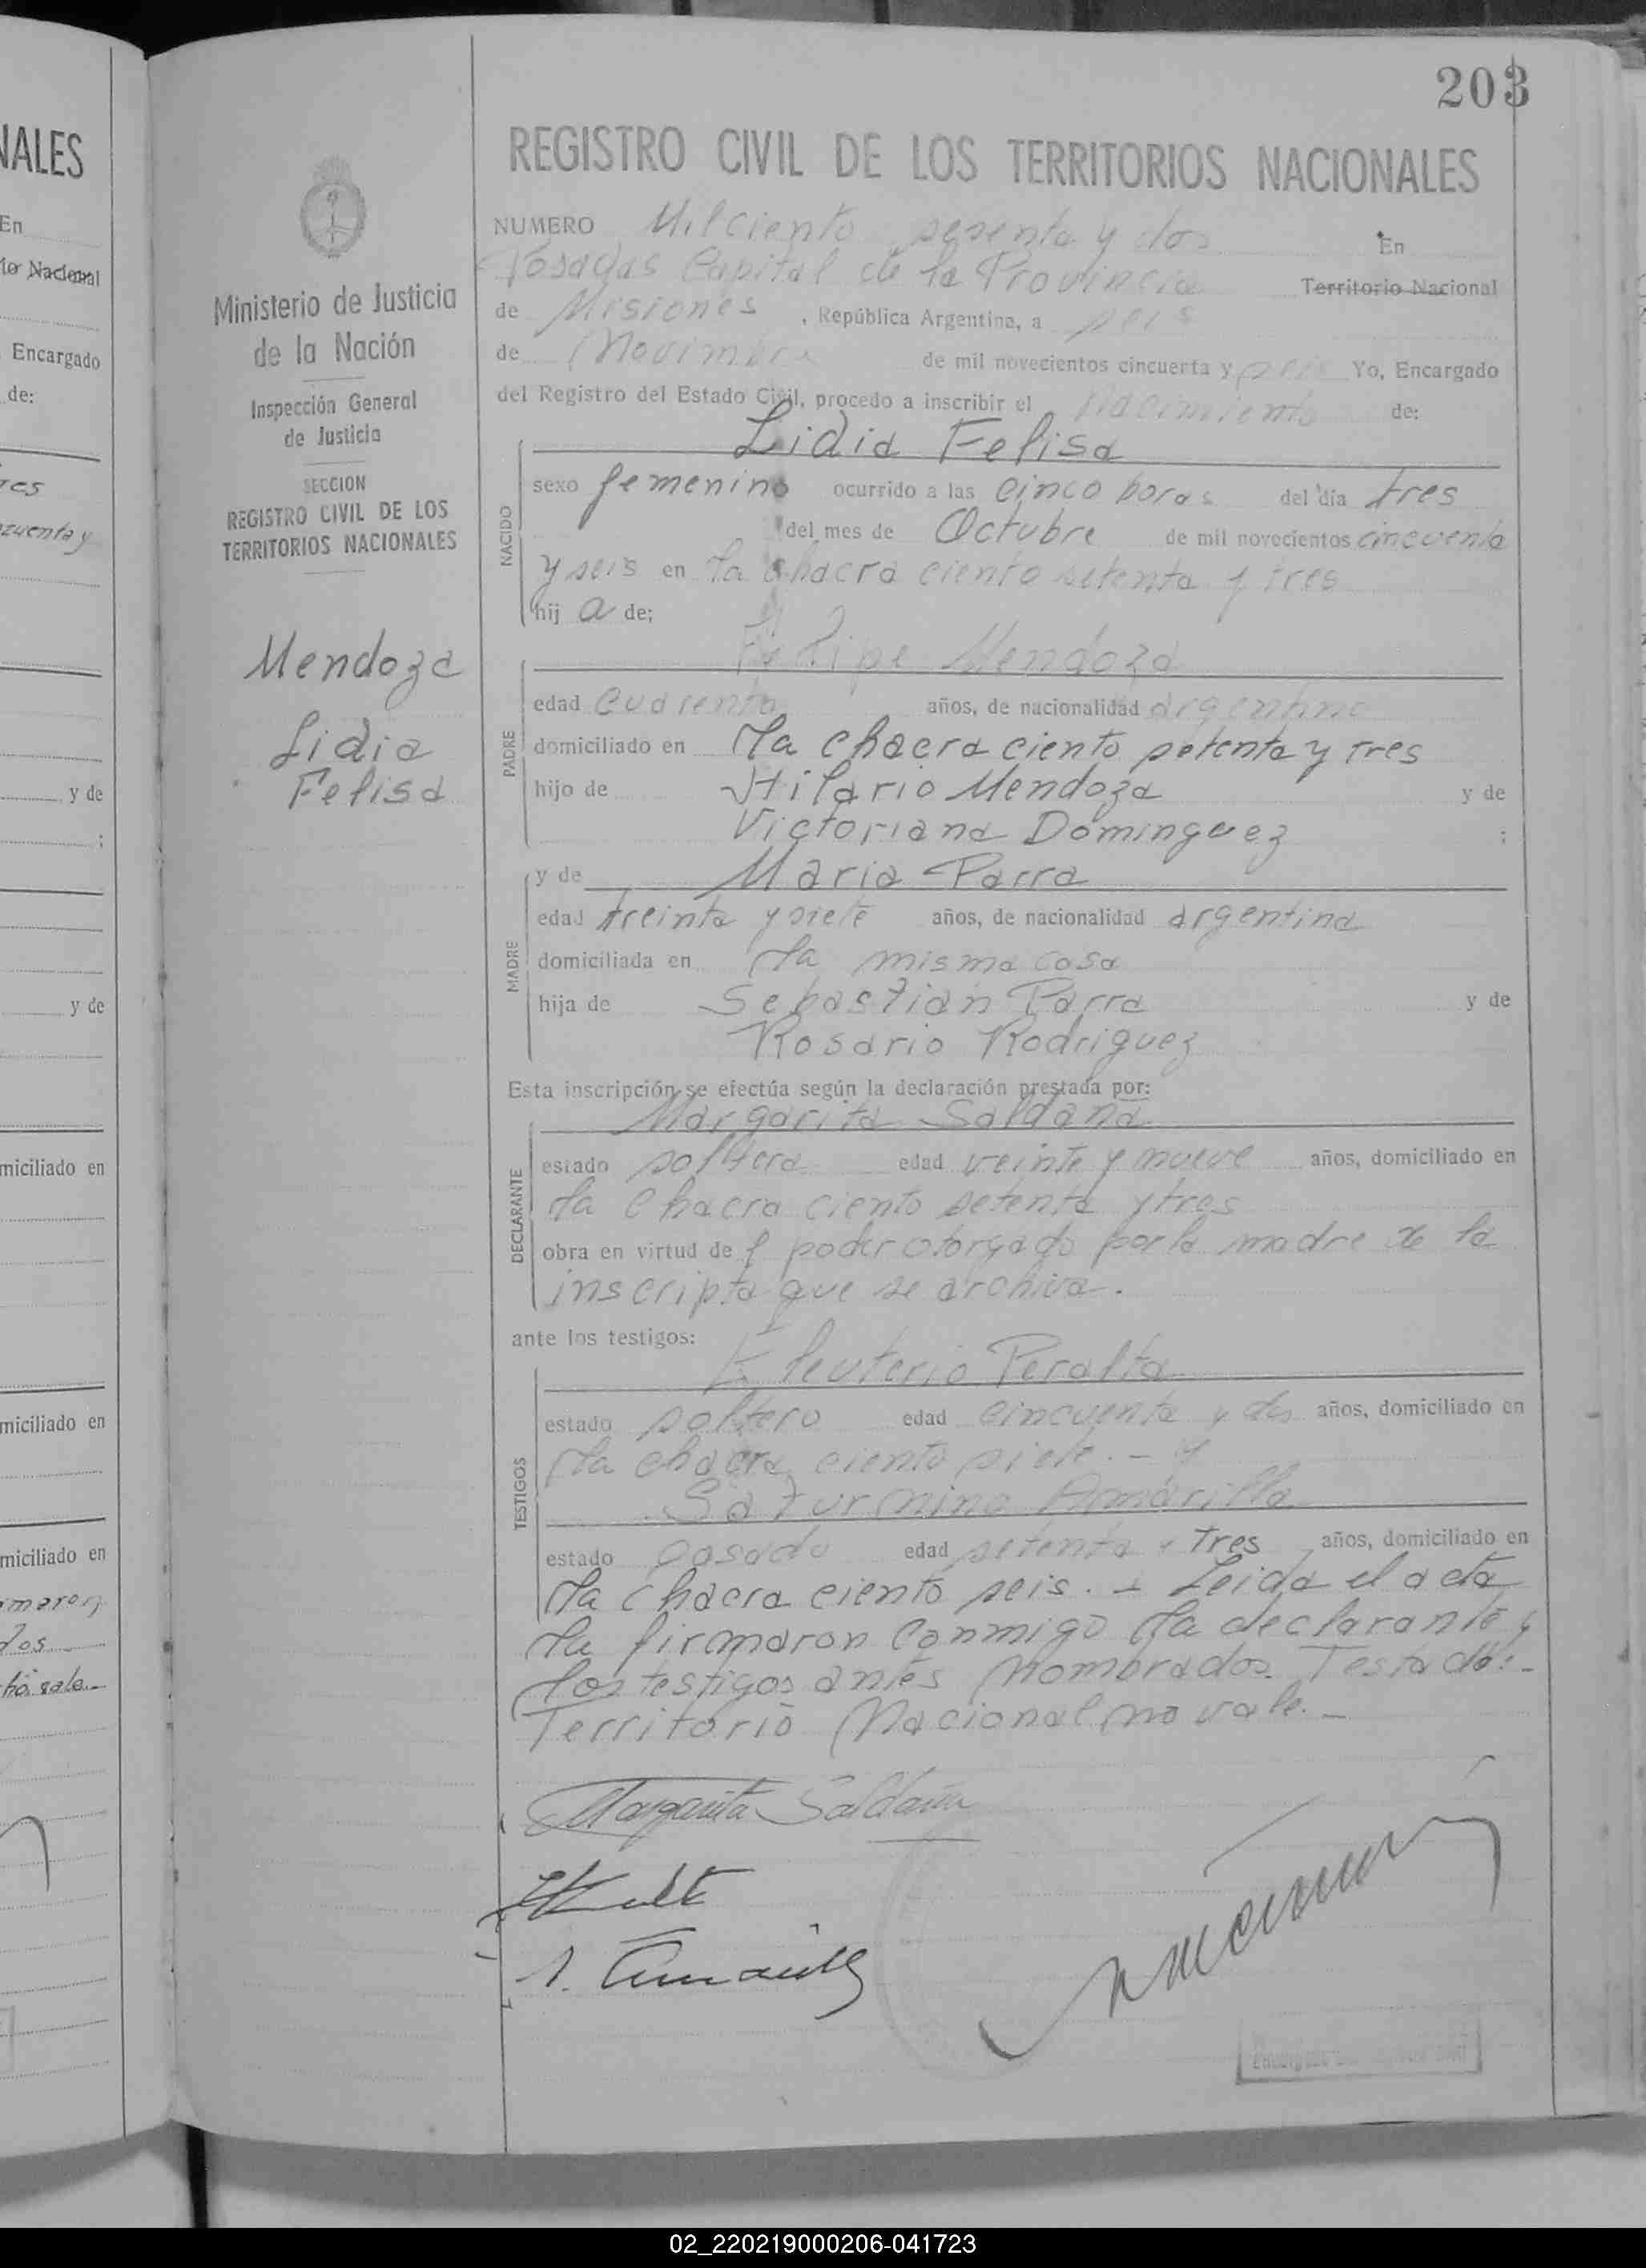 203
NALES
En
Nacional
Encargado
de:
res
cuenta y
y de
;
y de
miciliado en
miciliado en
miciliado en
maron
dos
Ministerio de Justicia
de la Nación
Inspección General
de Justicia
SECCION
REGISTRO CIVIL DE LOS
TERRITORIOS NACIONALES
Mendoza
Lidia
Felisa
REGISTRO CIVIL DE LOS TERRITORIOS NACIONALES
NUMERO Mil ciento sesenta y dos En
Posadas Capital de la Provincia Territorio Nacional
de Misiones , República Argentina, a seis
de Noviembre de mil novecientos cincuenta y seis Yo, Encargado
del Registro del Estado Civil, procedo a inscribir el Nacimiento de:
Lidia Felisa
NACIDO
sexo femenino ocurrido a las cinco horas del día tres
del mes de Octubre de mil novecientos cincuenta
y seis en la chacra ciento setenta y tres
hij a de;
Felipe Mendoza
PADRE
edad cuarenta años, de nacionalidad argentino
domiciliado en la chacra ciento setenta y tres
hijo de Hilario Mendoza y de
Victoriana Dominguez ;
y de Maria Parra
MADRE
edad treinta y siete años, de nacionalidad argentina
domiciliada en la misma casa
hija de Sebastian Parra y de
Rosario Rodriguez
Esta inscripción se efectúa según la declaración prestada por:
Margarita Saldaña
DECLARANTE
estado soltera edad veinte y nueve años, domiciliado en
la chacra ciento setenta y tres
obra en virtud de l poder otorgado por la madre de la
inscripta que se archiva.
ante los testigos:
Eleuterio Peralta
TESTIGOS
estado soltero edad cincuenta y dos años, domiciliado en
la chacra ciento siete. - y
Saturnino Amarilla
estado casado edad setenta y tres años, domiciliado en
la chacra ciento seis. - Leida el acta
la firmaron conmigo la declarante y
los testigos antes nombrados. Testado: -
Territorio Nacional no vale. -
Margarita Saldaña
S. Amarilla
02_220219000206-041723